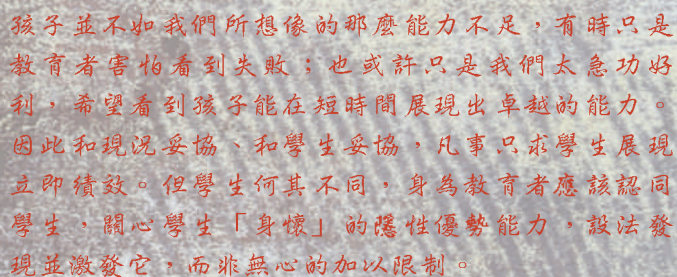 孩子並不如我們所想像的那麼能力不足，有時只是
教育者害怕看到失敗；也或許只是我們太急功好
利，希望看到孩子能在短時間展現出卓越的能力。
因此和現況妥協、和學生妥協，凡事只求學生展現
立即績效。但學生何其不同，身為教育者應該認同
學生，關心學生「身懷」的隱性優勢能力，設法發
現並激發它，而非無心的加以限制。